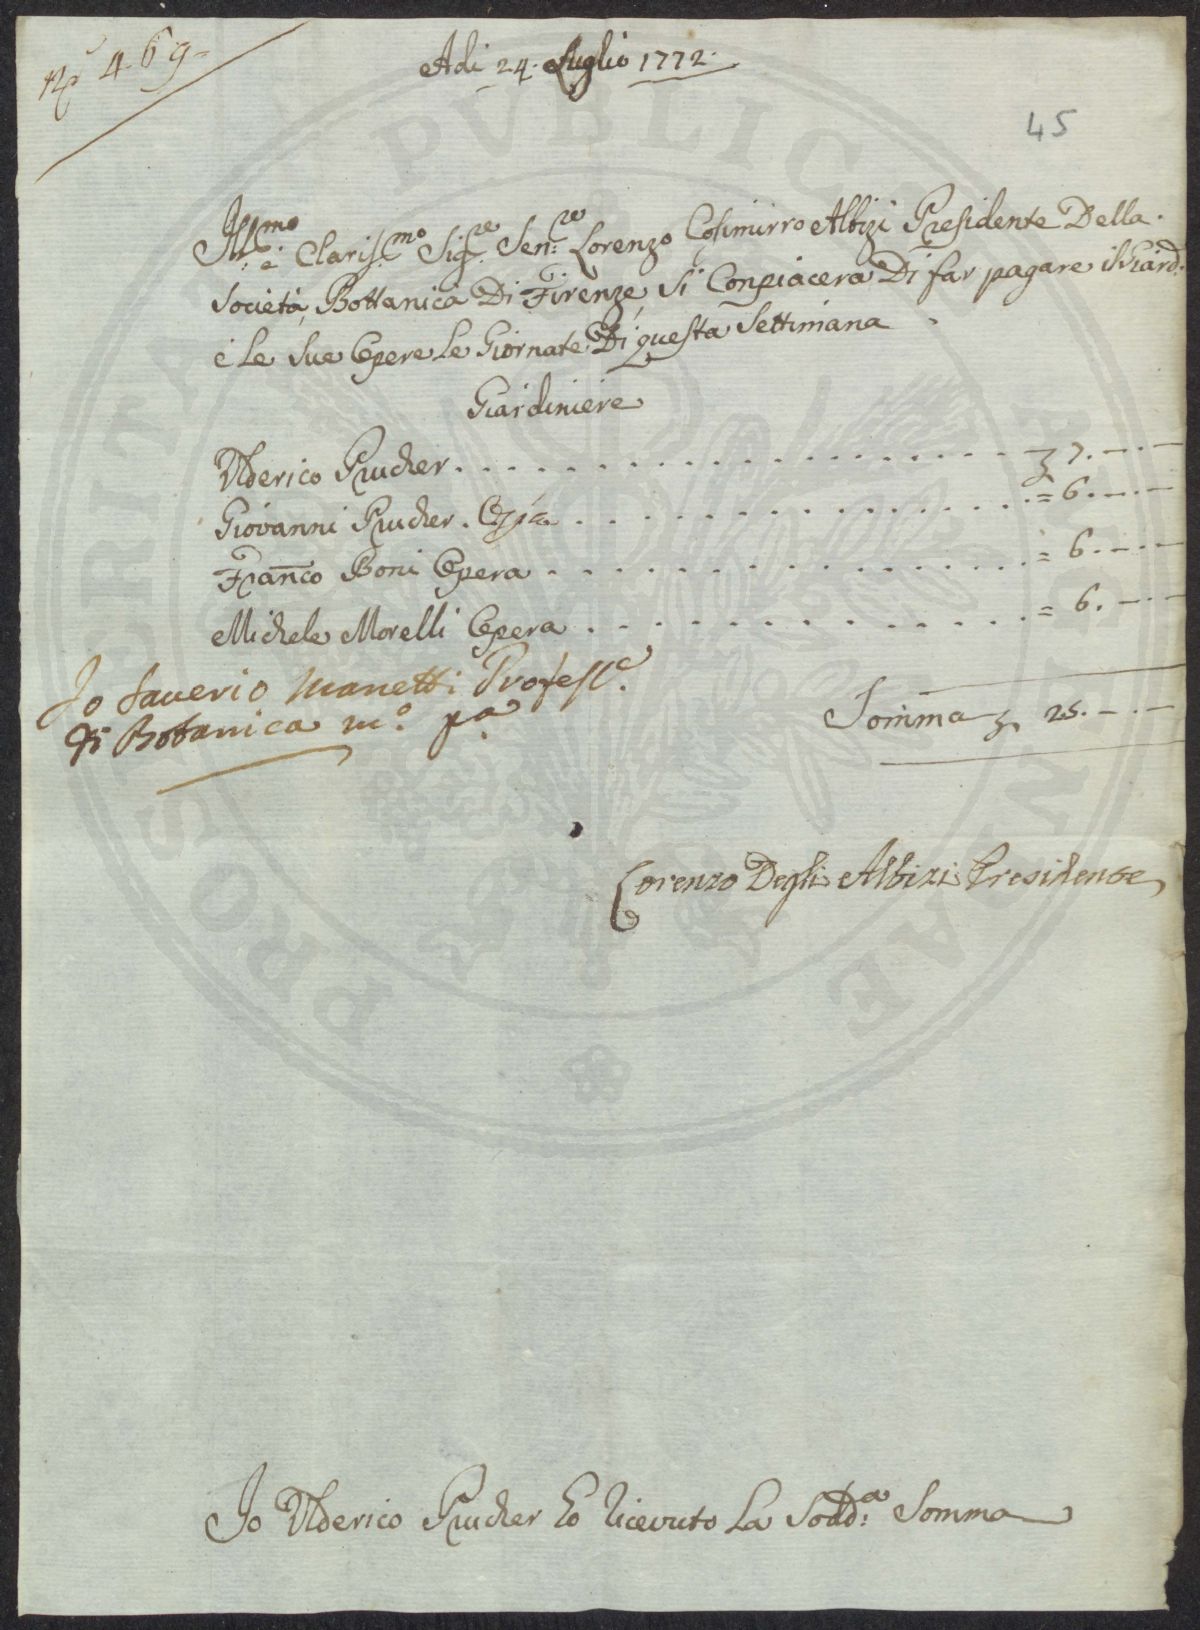 N.º 469
Adi 24. Luglio 1772.
45
Ill.mo e Claris.mo Sig.re Sen.re Lorenzo Cosimirro Albizi Presidente Della
Società Bottanica Di Firenze, si Conpiacera Di far pagare il Giard.
e Le Sue Opere Le Giornate Di questa Settimana
Giardiniere
Ulderico Prucher . . . . . . . . . . . . . . . . . 7. — . —
Giovanni Prucher . Opra . . . . . . . . . . . . . = 6. — . —
Fran̄co Boni Opera . . . . . . . . . . . . . . . = 6. — . —
Michele Morelli Opera . . . . . . . . . . . . . = 6. — . —
Somma 25. — . —
Io Saverio Manetti Profess.e
di Botanica m.o p.a
Lorenzo Degli Albizi Presidente
Io Ulderico Prucher ho ricevuto La Sodd.a Somma
PROSPERITATI PUBLICAE AUGENDAE